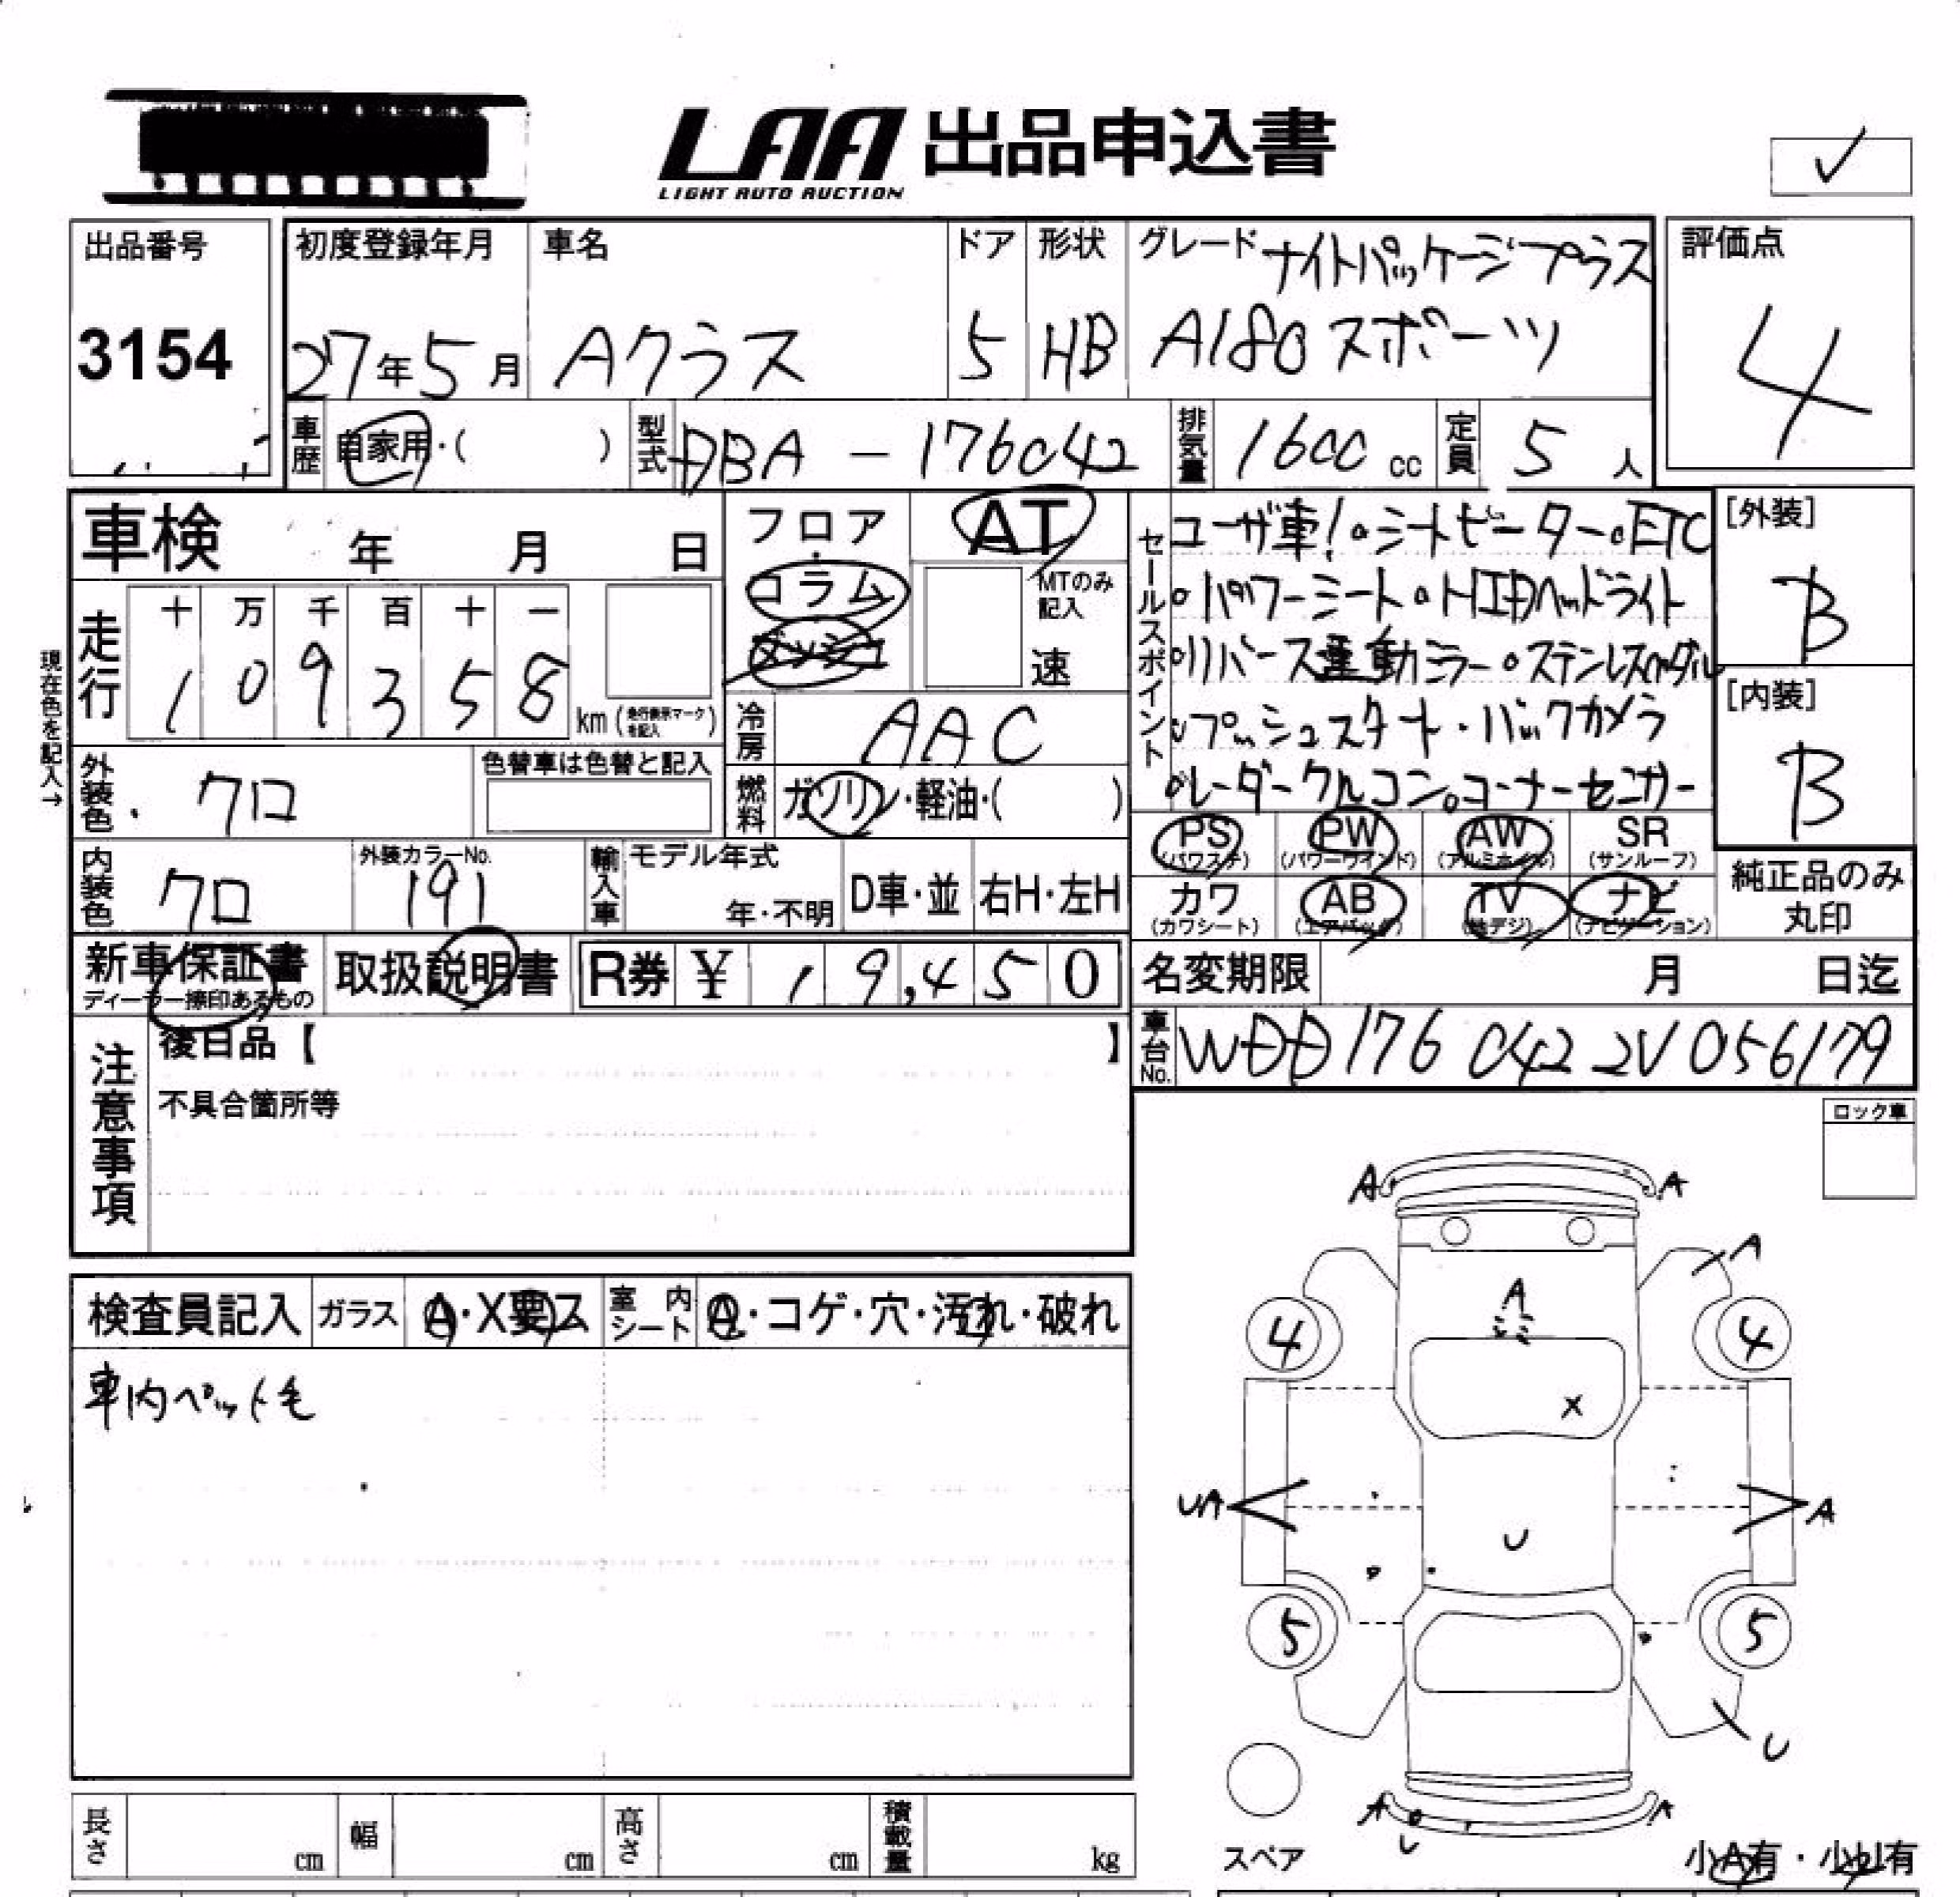 LAA 出品申込書
LIGHT AUTO AUCTION
✓
出品番号
3154
初度登録年月
27年5月
車名
Aクラス
ドア
5
形状
HB
グレード ナイトパッケージプラス
A180 スポーツ
評価点
4
車歴 自家用・( )
型式 DBA - 176042
排気量 1600 cc
定員 5 人
車検 年 月 日
フロア
・
コラム
AT
MTのみ記入
速
現在色を記入→
走行
十 万 千 百 十 一
1 0 9 3 5 8
km (走行表示マークを記入)
冷房 AAC
外装色 クロ
色替車は色替と記入
燃料 ガソリン・軽油・( )
内装色 クロ
外装カラーNo.
191
輸入車 モデル年式
年・不明
D車・並
右H・左H
セールスポイント
ユーザ車!。シートヒーター。ETC
。パワーシート。HIDヘッドライト
。リバース連動ミラー。ステンレスペダル
。プッシュスタート・バックカメラ
。レーダークルコン。コーナーセンサー
[外装]
B
[内装]
B
PS (パワステ)
PW (パワーウインド)
AW (アルミホイル)
SR (サンルーフ)
カワ (カワシート)
AB (エアバッグ)
TV (地デジ)
ナビ (ナビゲーション)
純正品のみ
丸印
新車保証書
ディーラー捺印あるもの
取扱説明書
R券 ¥ 19,450
名変期限 月 日迄
車台No. WDD176 042 2V 056179
注意事項
後日品【 】
不具合箇所等
ロック車
検査員記入
ガラス A・X要ス
室内シート A・コゲ・穴・汚れ・破れ
車内ペット毛
A A
A
A
4 4
X
UA A
U
5 5
U
A A
U
スペア
小A有・小U有
長さ cm
幅 cm
高さ cm
積載量 kg